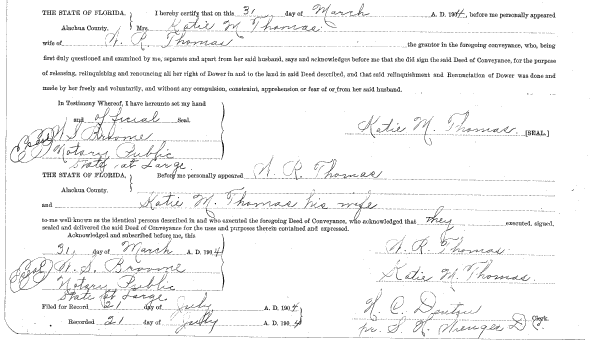 THE STATE OF FLORIDA, I hereby certify that on this 31 day of March A. D. 1904, before me personally appeared
Alachua County. Mrs. Katie M Thomas
wife of W. R. Thomas the grantor in the foregoing conveyance, who, being
first duly questioned and examined by me, separate and apart from her said husband, says and acknowledges before me that she did sign the said Deed of Conveyance, for the purpose
of releasing, relinquishing and renouncing all her right of Dower in and to the land in said Deed described, and that said relinquishment and Renunciation of Dower was done and
made by her freely and voluntarily, and without any compulsion, constraint, apprehension or fear of or from her said husband.
In Testimony Whereof, I have hereunto set my hand
and official Seal. Katie M. Thomas. [SEAL.]
Seal W. S. Broome
Notary Public
State at Large.
THE STATE OF FLORIDA, Before me personally appeared W. R. Thomas
Alachua County.
and Katie M. Thomas his wife
to me well known as the identical persons described in and who executed the foregoing Deed of Conveyance, who acknowledged that they executed, signed,
sealed and delivered the said Deed of Conveyance for the uses and purposes therein contained and expressed.
Acknowledged and subscribed before me, this
31, day of March A. D. 1904 W. R. Thomas
Seal W. S. Broome Katie M. Thomas.
Notary Public
State at Large
Filed for Record 21 day of July A. D. 1904 H. C. Denton Clerk.
Recorded 21 day of July A. D. 1904 pr. S. H. Wienges D C.